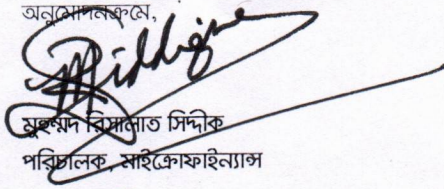 অনুমোদনক্রমে,
মুহম্মদ রিসালাত সিদ্দীক
পরিচালক, মাইক্রোফাইন্যান্স